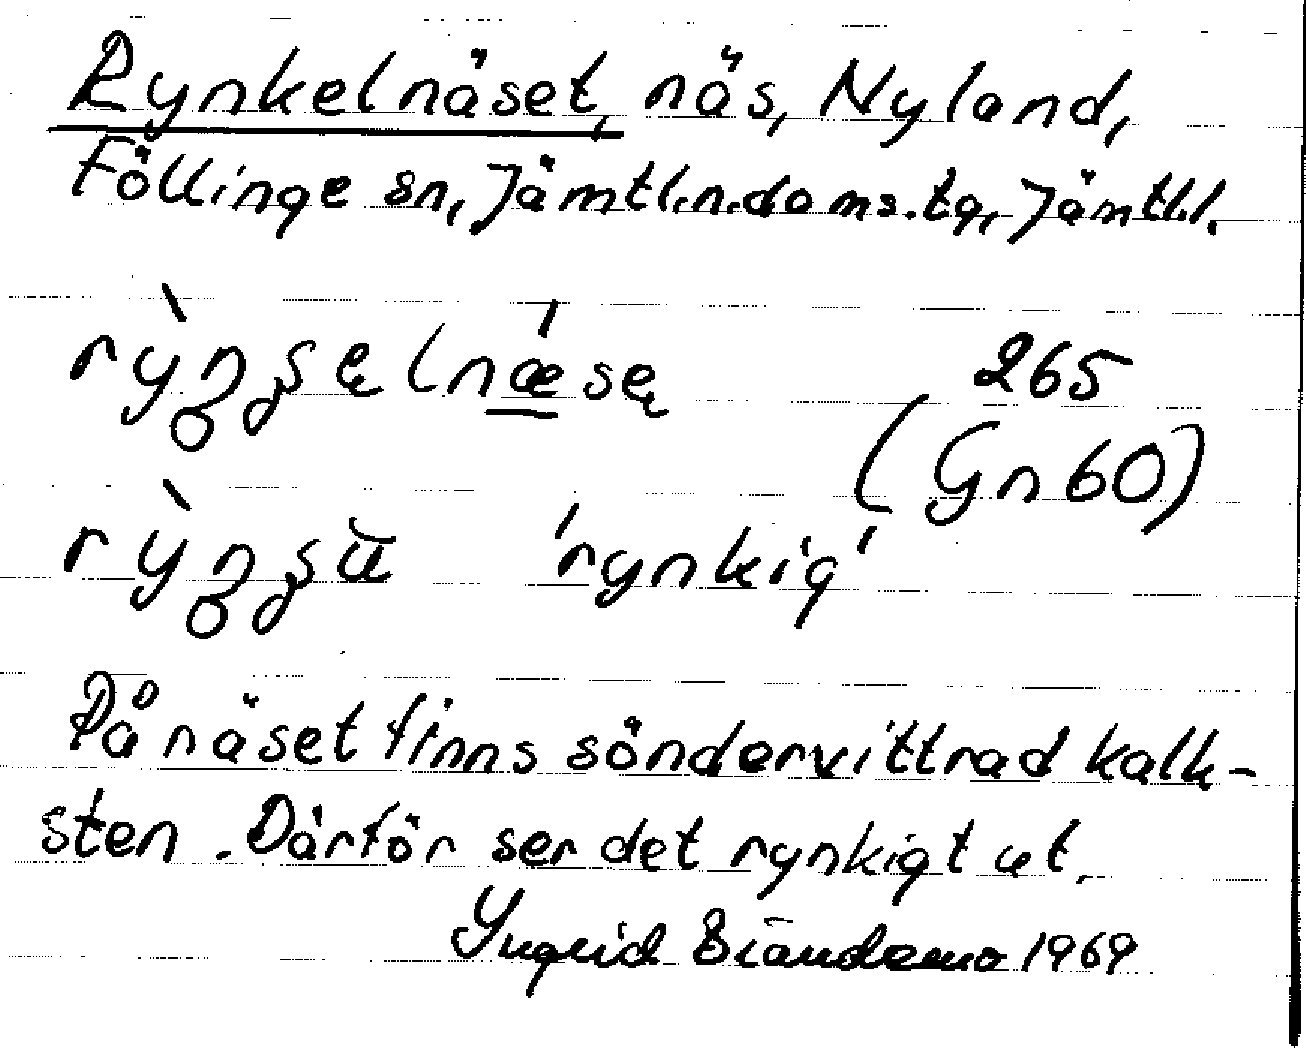 Rynkelnäset, näs, Nyland,
Föllinge sn, Jämtl.n.doms.tg, Jämtl.l.
265
(Gn 60)
'rynkig'
På näset finns söndervittrad kalk-
sten. Därför ser det rynkigt ut.
Yngrid 1969